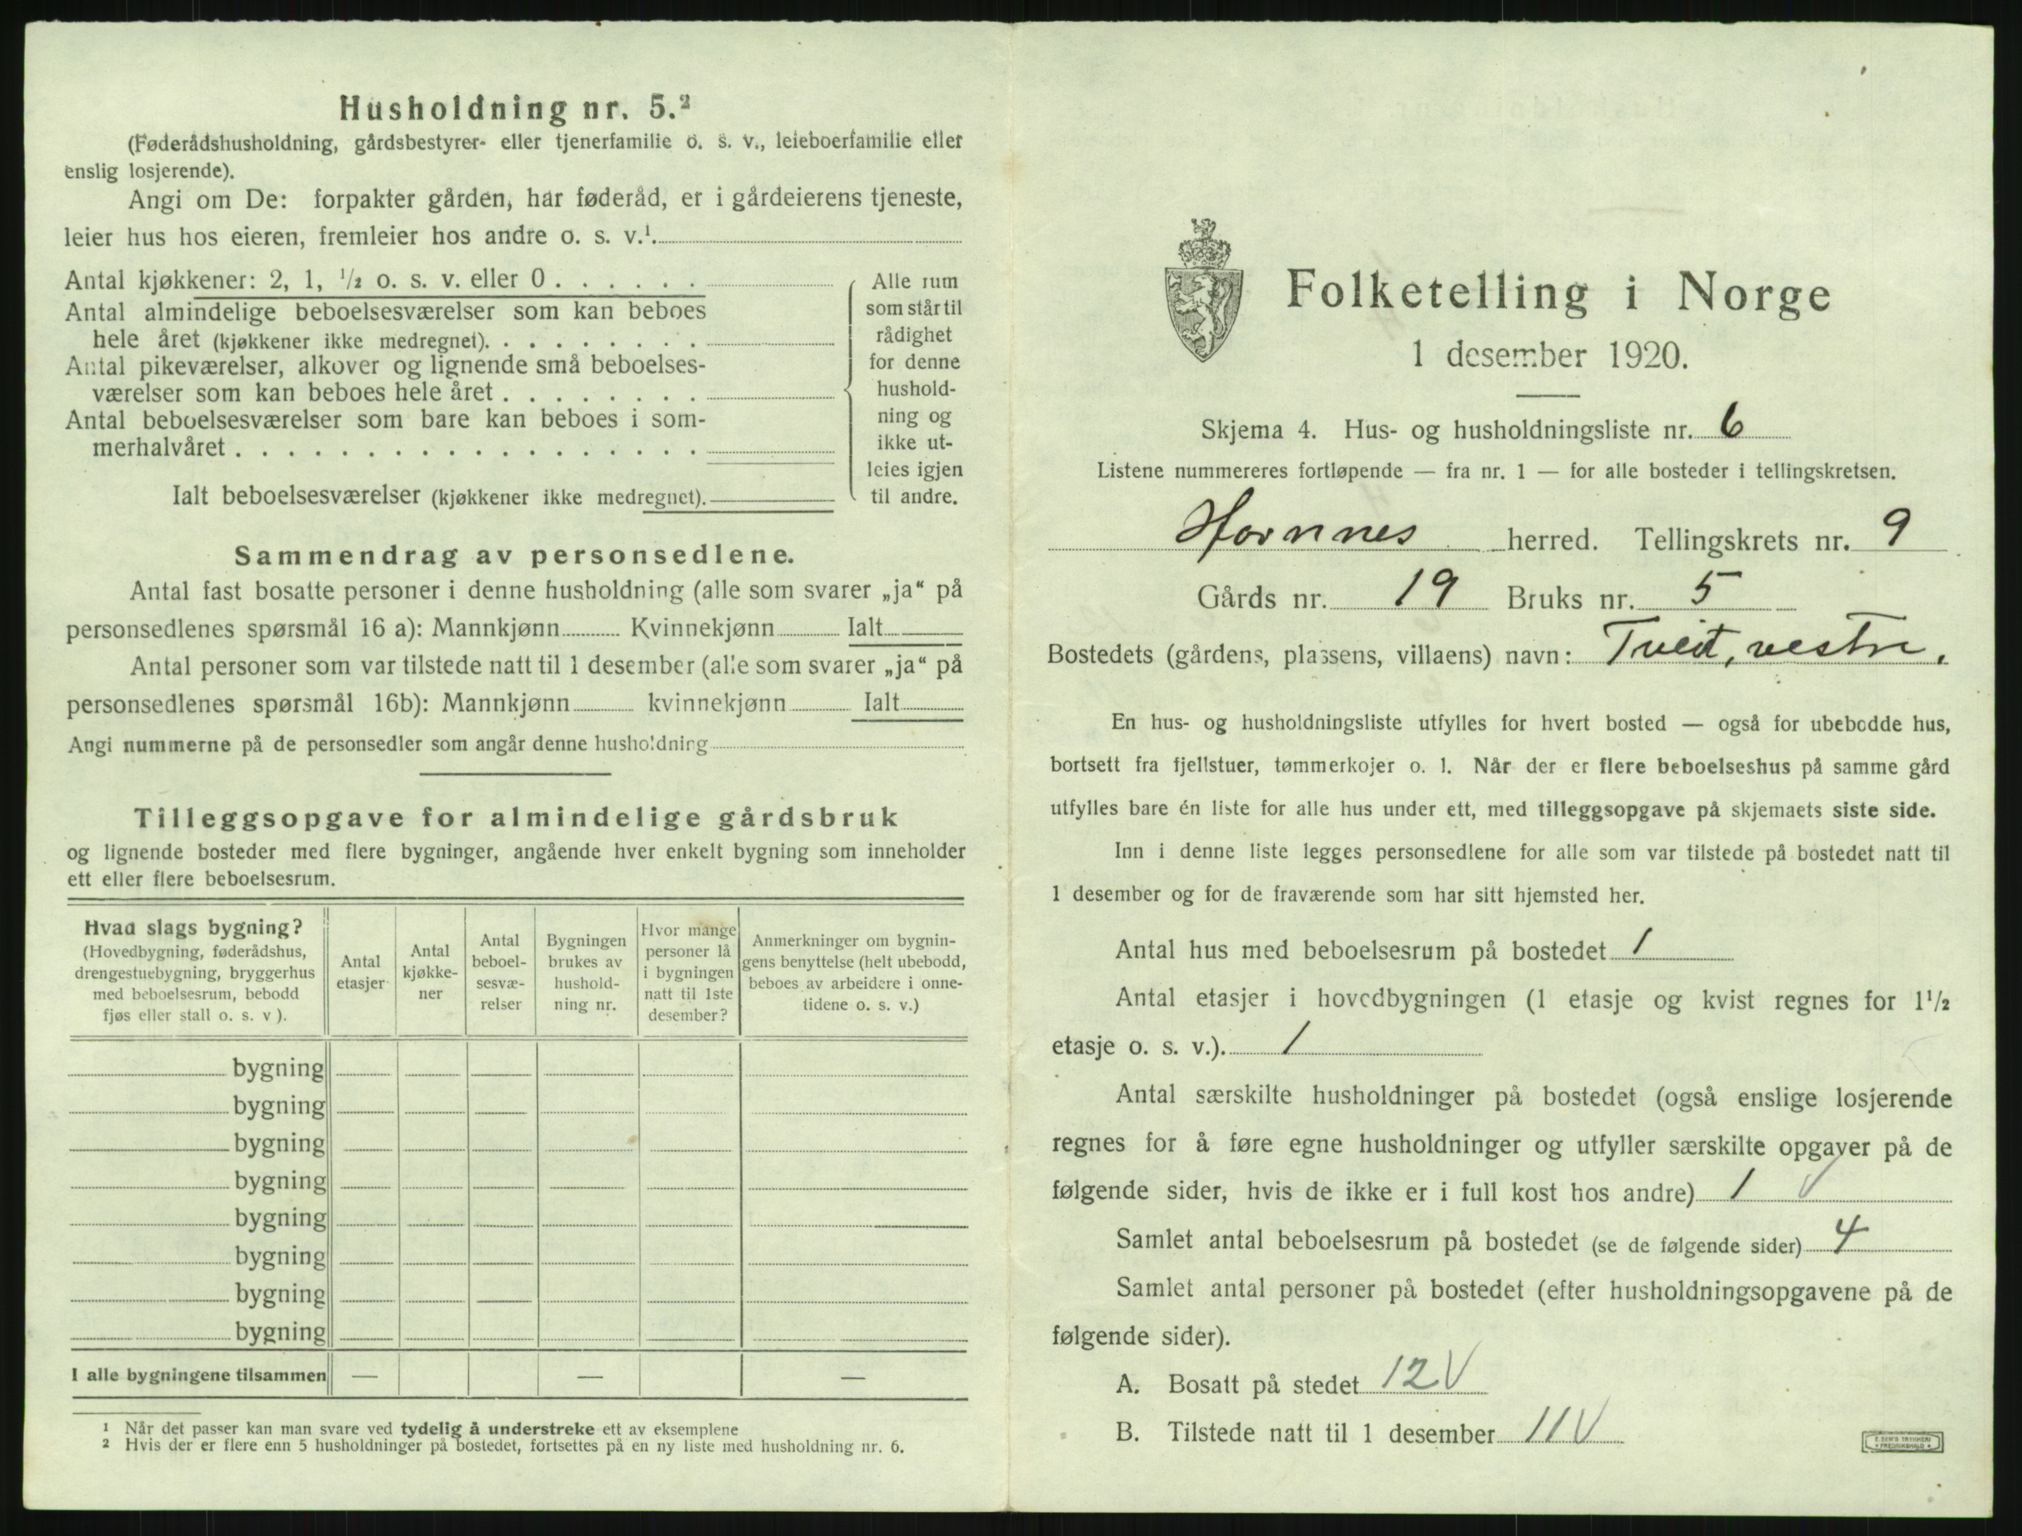 Husholdning nr. 5.²
(Føderådshusholdning, gårdsbestyrer- eller tjenerfamilie o. s. v., leieboerfamilie eller
enslig losjerende).
Angi om De: forpakter gården, har føderåd, er i gårdeierens tjeneste,
leier hus hos eieren, fremleier hos andre o. s. v.¹.
Antal kjøkkener: 2, 1, ½ o. s. v. eller 0 . . . . . .
Antal almindelige beboelsesværelser som kan beboes
hele året (kjøkkener ikke medregnet). . . . . . . . .
Antal pikeværelser, alkover og lignende små beboelses-
værelser som kan beboes hele året . . . . . . . .
Antal beboelsesværelser som bare kan beboes i som-
merhalvåret . . . . . . . . . . . . . . . . . .
Ialt beboelsesværelser (kjøkkener ikke medregnet).
Alle rum
som står til
rådighet
for denne
hushold-
ning og
ikke ut-
leies igjen
til andre.
Sammendrag av personsedlene.
Antal fast bosatte personer i denne husholdning (alle som svarer „ja“ på
personsedlenes spørsmål 16 a): Mannkjønn Kvinnekjønn Ialt
Antal personer som var tilstede natt til 1 desember (alle som svarer „ja“ på
personsedlenes spørsmål 16b): Mannkjønn kvinnekjønn Ialt
Angi nummerne på de personsedler som angår denne husholdning
Tilleggsopgave for almindelige gårdsbruk
og lignende bosteder med flere bygninger, angående hver enkelt bygning som inneholder
ett eller flere beboelsesrum.
Hvad slags bygning?
(Hovedbygning, føderådshus,
drengestuebygning, bryggerhus
med beboelsesrum, bebodd
fjøs eller stall o. s. v ).
Antal
etasjer
Antal
kjøkke-
ner
Antal
beboel-
sesvæ-
relser
Bygningen
brukes av
hushold-
ning nr.
Hvor mange
personer lå
i bygningen
natt til 1ste
desember?
Anmerkninger om bygnin-
gens benyttelse (helt ubebodd,
beboes av arbeidere i onne-
tidene o. s. v.)
bygning
bygning
bygning
bygning
bygning
bygning
bygning
bygning
I alle bygningene tilsammen — — —
¹ Når det passer kan man svare ved tydelig å understreke ett av eksemplene
² Hvis der er flere enn 5 husholdninger på bostedet, fortsettes på en ny liste med husholdning nr. 6.
Folketelling i Norge
1 desember 1920.
Skjema 4. Hus- og husholdningsliste nr. 6
Listene nummereres fortløpende — fra nr. 1 — for alle bosteder i tellingskretsen.
Hornnes herred. Tellingskrets nr. 9
Gårds nr. 19 Bruks nr. 5
Bostedets (gårdens, plassens, villaens) navn: Tveit, vestre.
En hus- og husholdningsliste utfylles for hvert bosted — også for ubebodde hus,
bortsett fra fjellstuer, tømmerkojer o. l. Når der er flere beboelseshus på samme gård
utfylles bare én liste for alle hus under ett, med tilleggsopgave på skjemaets siste side.
Inn i denne liste legges personsedlene for alle som var tilstede på bostedet natt til
1 desember og for de fraværende som har sitt hjemsted her.
Antal hus med beboelsesrum på bostedet 1
Antal etasjer i hovedbygningen (1 etasje og kvist regnes for 1½
etasje o. s. v.). 1
Antal særskilte husholdninger på bostedet (også enslige losjerende
regnes for å føre egne husholdninger og utfyller særskilte opgaver på de
følgende sider, hvis de ikke er i full kost hos andre) 1 V
Samlet antal beboelsesrum på bostedet (se de følgende sider) 4
Samlet antal personer på bostedet (efter husholdningsopgavene på de
følgende sider).
A. Bosatt på stedet 12 V
B. Tilstede natt til 1 desember 11 V